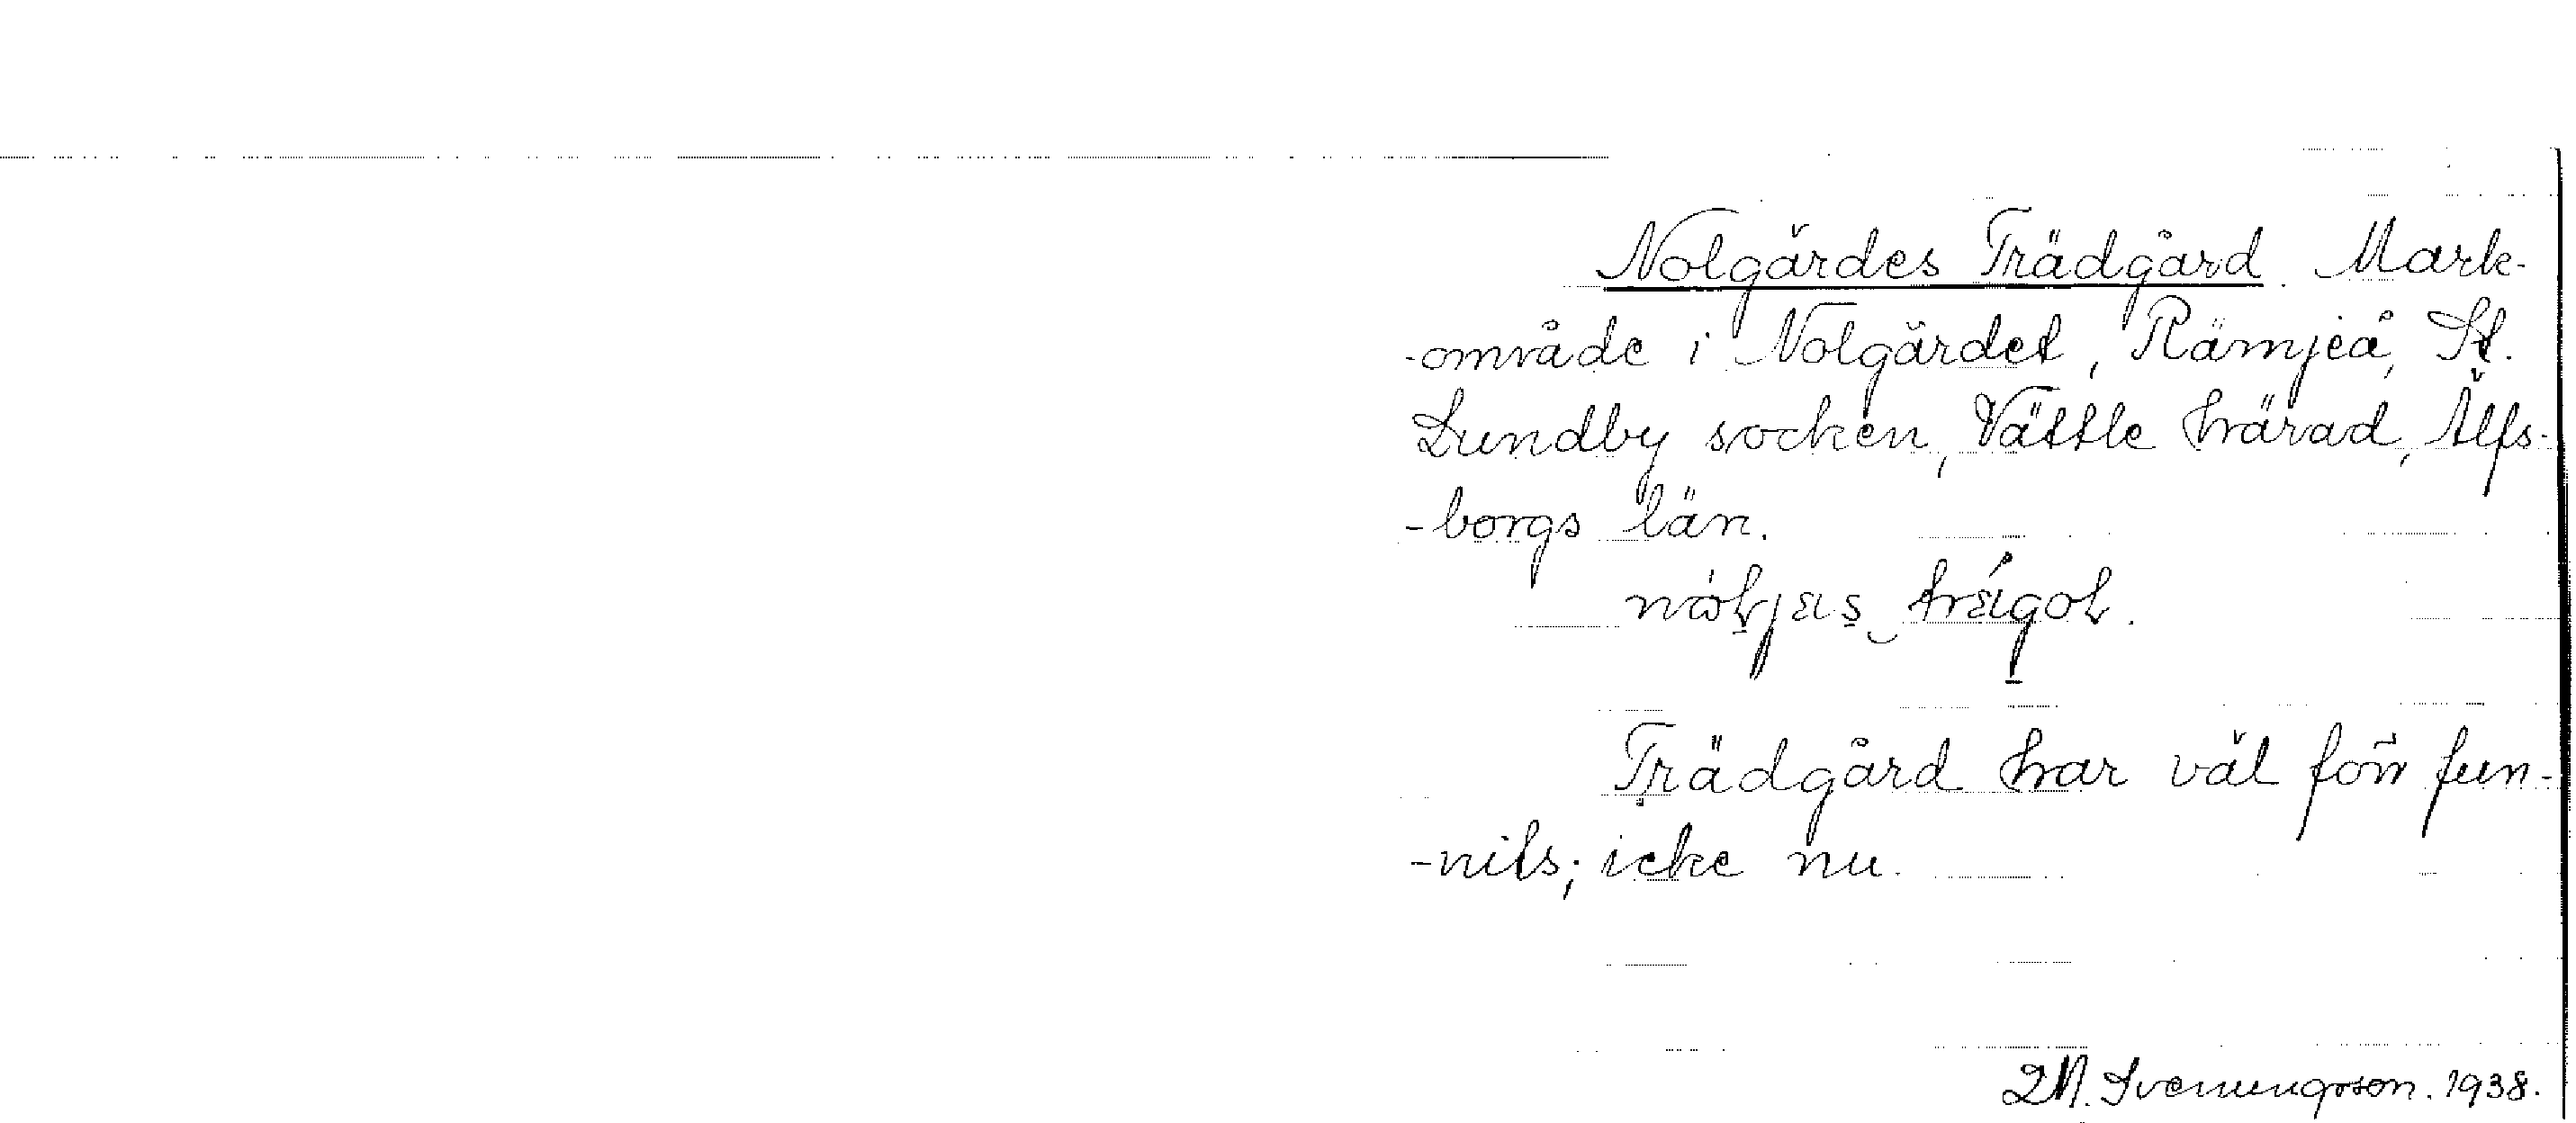 Nolgärdes Trädgård. Mark-
-område i Nolgärdet, Rämjeå, St.
Lundby socken, Vättle härad, Älfs-
-borgs län.
Trädgård har väl förr fun-
-nits; icke nu.
1938.